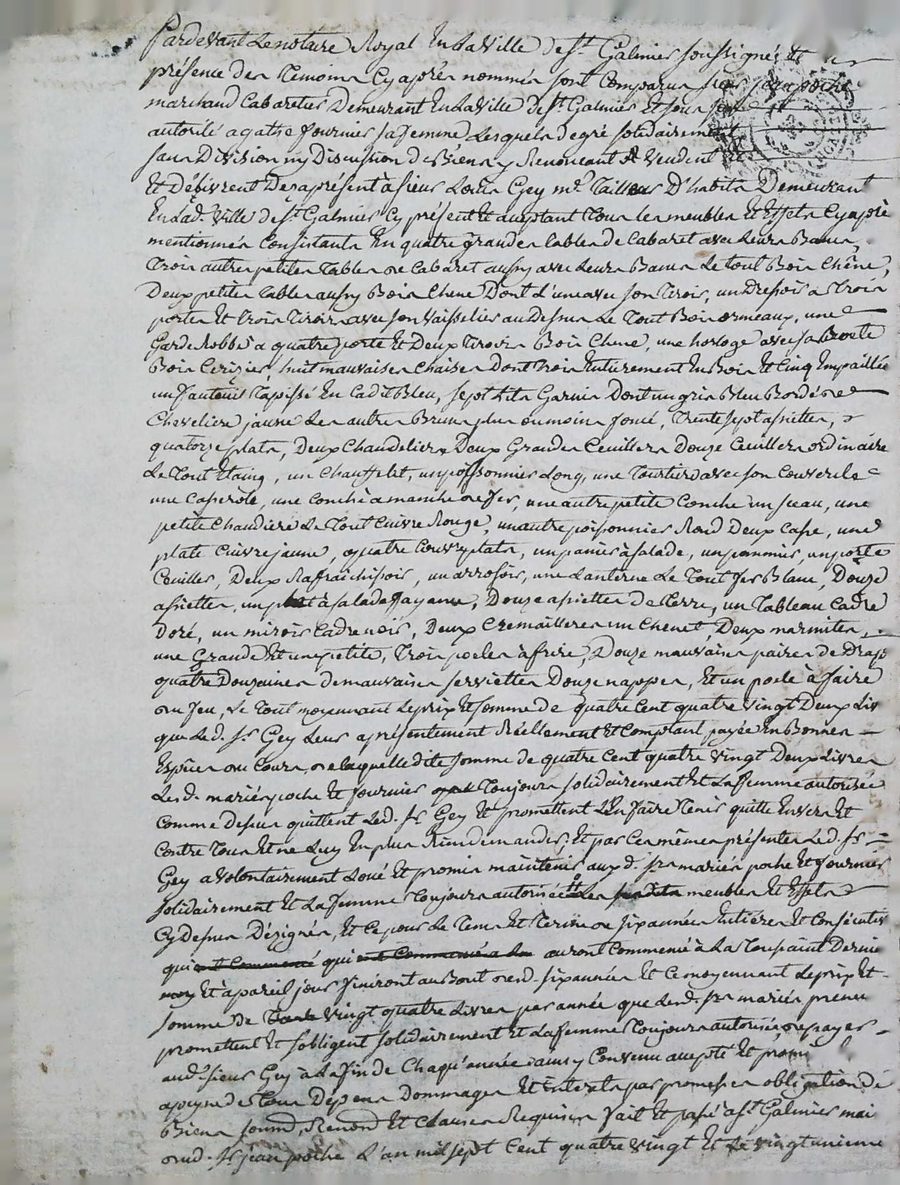 Pardevant Le notaire Royal En La Ville de St. Galmier soussigné, Et en
présence des Temoins Cy aprés nommés sont Comparus sieur jean poche
marchand Cabaretier Demeurant En La Ville de St. Galmier Et sous son
autorité agathe fournier sa femme Lesquels de gré solidairement
sans Division ny Discussion de Biens y Renonceant Vendent
Et Délivrent Dez a présent à sieur Louis Gey me. Tailleur D'habits Demeurant
En Lad. Ville de St. Galmier Cy présent Et aceptant Tous les meubles Et Effets Cy après
mentionnés Consistants En quatre grandes tables de Cabaret avec Leurs Bancs,
Trois autres petites Tables de Cabaret aussy avec Leurs Bancs Le tout Bois Chêne,
Deux petites tables aussy Bois Chene Dont L'une avec son Tiroir, un Dressoir a Trois
portes Et trois Tiroirs avec son Vaisselier au Dessus Le Tout Bois ormeaux, une
Garde Robbe a quatre porte Et Deux Tiroirs Bois Chene, une horloge avec sa Boëte
Bois Cerizier, huit mauvaises Chaises Dont trois Entierement En Bois Et Cinq Empaillée
un fauteuil Tapissé En Cadit Bleu, sept Lits Garnis Dont un gris Bleu Bordé de
Cheveliere jaune Les autres Bruns plus ou moins foncé, Trente sept assiettes,
quatorze plats, Deux Chandeliers Deux Grandes Ceuilleres Douze Ceuilleres ordinaire
Le Tout Etaing, un Chauffelit, un poissonnier Long, une Tourtiere avec son Couvercle
une Casserole, une Conche à manche de fer, une autre petite Conche un seau, une
petite Chaudiere Le Tout Cuivre Rouge, un autre poisonnier Rond Deux Casse, une
plate Cuivre jaune, quatre Couvre plats, un panier à salade, un porte
Ceuilles, Deux Rafraichisoir, un arrosoir, une Lanterne Le Tout fer Blanc, Douze
assiettes, un plat à salade fayance, Douze assiettes de Terre, un Tableau Cadre
Doré, un miroir Cadre noir, Deux Cremailleres un Chenet, Deux marmites,
une Grande Et une petite, Trois poeles à frire, Douze mauvaises paires de Draps
quatre Douzaines de mauvaises serviettes Douze nappes, Et un poele à faire
du feu, Le Tout moyennant Le prix Et somme de quatre Cent quatre Vingt Deux Liv
que Led. Sr. Gey Leur a présentement Réellement Et Comptant payée En Bonnes
Espèces au Cours, de laquelle dite somme de quatre Cent quatre Vingt Deux Livres
Lesd. mariés poche Et fournier Toujours solidairement Et La femme autorisée
Comme Dessus quittent Led. Sr. Gey Et promettent L'En faire Tenir quitte Envers Et
Contre Tous Et ne Luy En plus Rien demander, Et par Ces mêmes présentes Led. Sr.
Gey a Volontairement Loué Et promis maintenir auxd. Srs mariés poche Et fournier
solidairement Et La femme Toujours autorisée Les meubles Et Effets
Cy Dessus Dézignés, Et Ce pour Le Tems Et Terme de six années Entières Et Consécutiv
qui auront Commencé à La Toussaint Dernie
Et à pareil jour finiront au Bout desd. six années Et Ce moyennant Le prix Et
somme de Vingt quatre Livres par année que Lesd. Srs mariés preneu
promettent Et s'obligent solidairement Et La femme Toujours autorisée de payer
aud. sieur Gey à La fin de Chaqu'année ainsy Convenu accepté Et promi
a peyne de Tous Dépens Dommages Et interets par promesses obligation de
Biens soumd. Renond Et Clauses Requises fait Et passé a St. Galmier mai
dud. Sr. jean poche L'an mil sept Cent quatre Vingt Et Le Vingt unieme